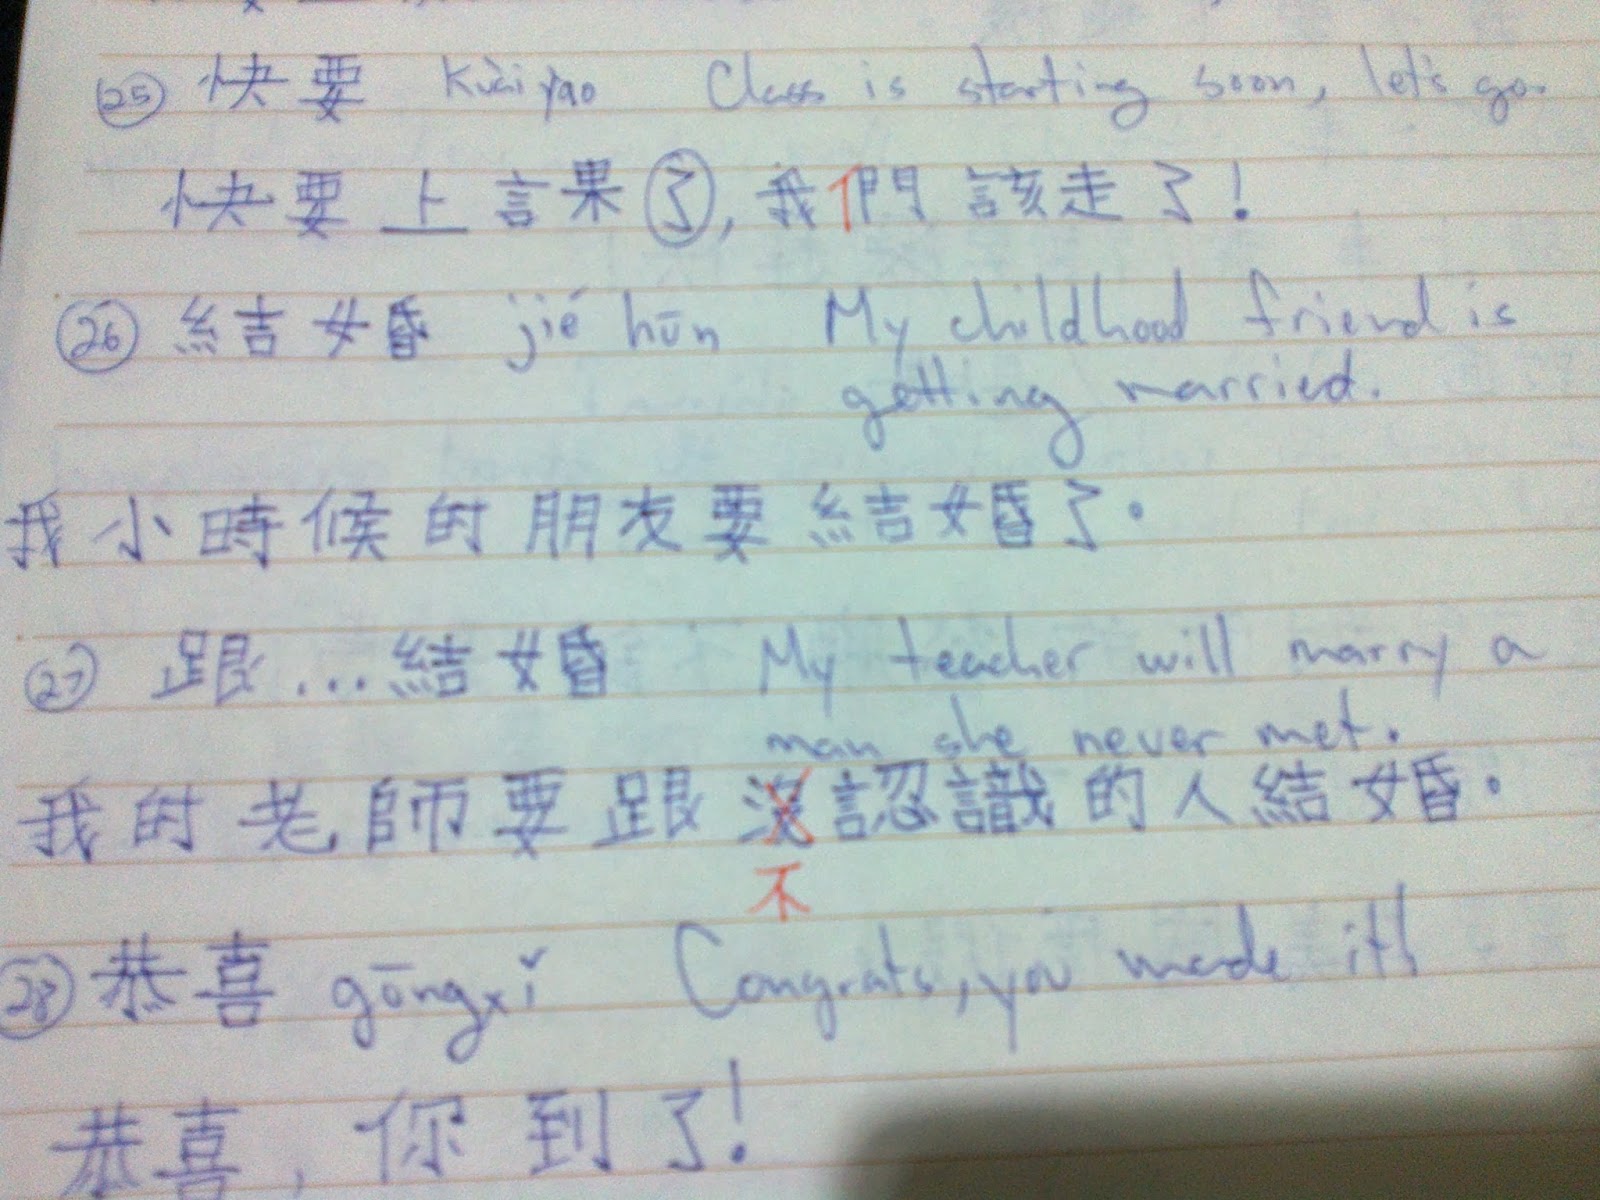 25 快要 kuài yào Class is starting soon, let's go.
快要上課了, 我們該走了!
26 結婚 jié hūn My childhood friend is
getting married.
我小時候的朋友要結婚了。
27 跟...結婚 My teacher will marry a
man she never met.
我的老師要跟沒認識的人結婚。
不
28 恭喜 gōngxǐ Congrats, you made it!
恭喜, 你到了!